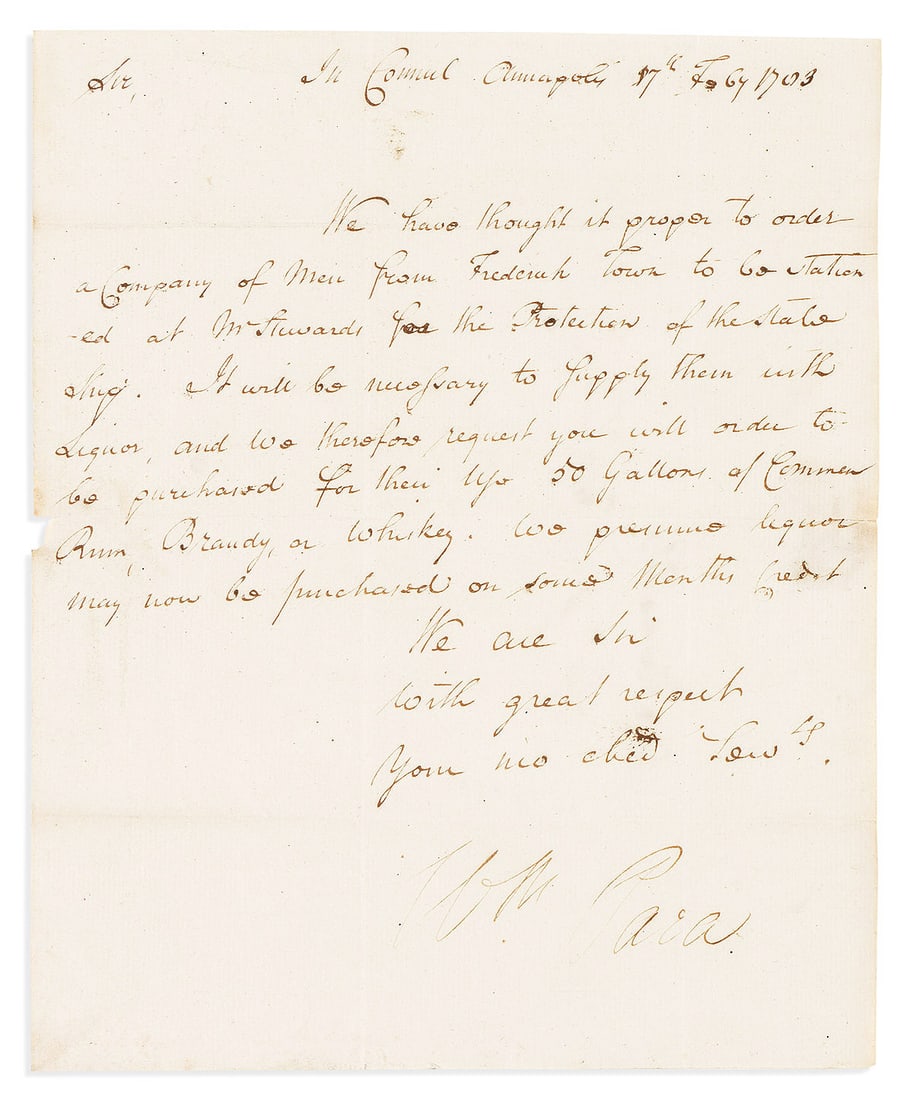 Sir, In Council Annapolis 17th Feby 1783
We have thought it proper to order
a Company of Men from Frederick Town to be station
-ed at Mr Stewards for the Protection of the State
Ship. It will be necessary to supply them with
Liquor, and we therefore request you will order to
be purchased for their Use 50 Gallons of Common
Rum, Brandy, or Whiskey. We presume liquor
may now be purchased on some Months Credit
We are Sir
With great respect
Your mo obed Serv ts.
Wm Paca